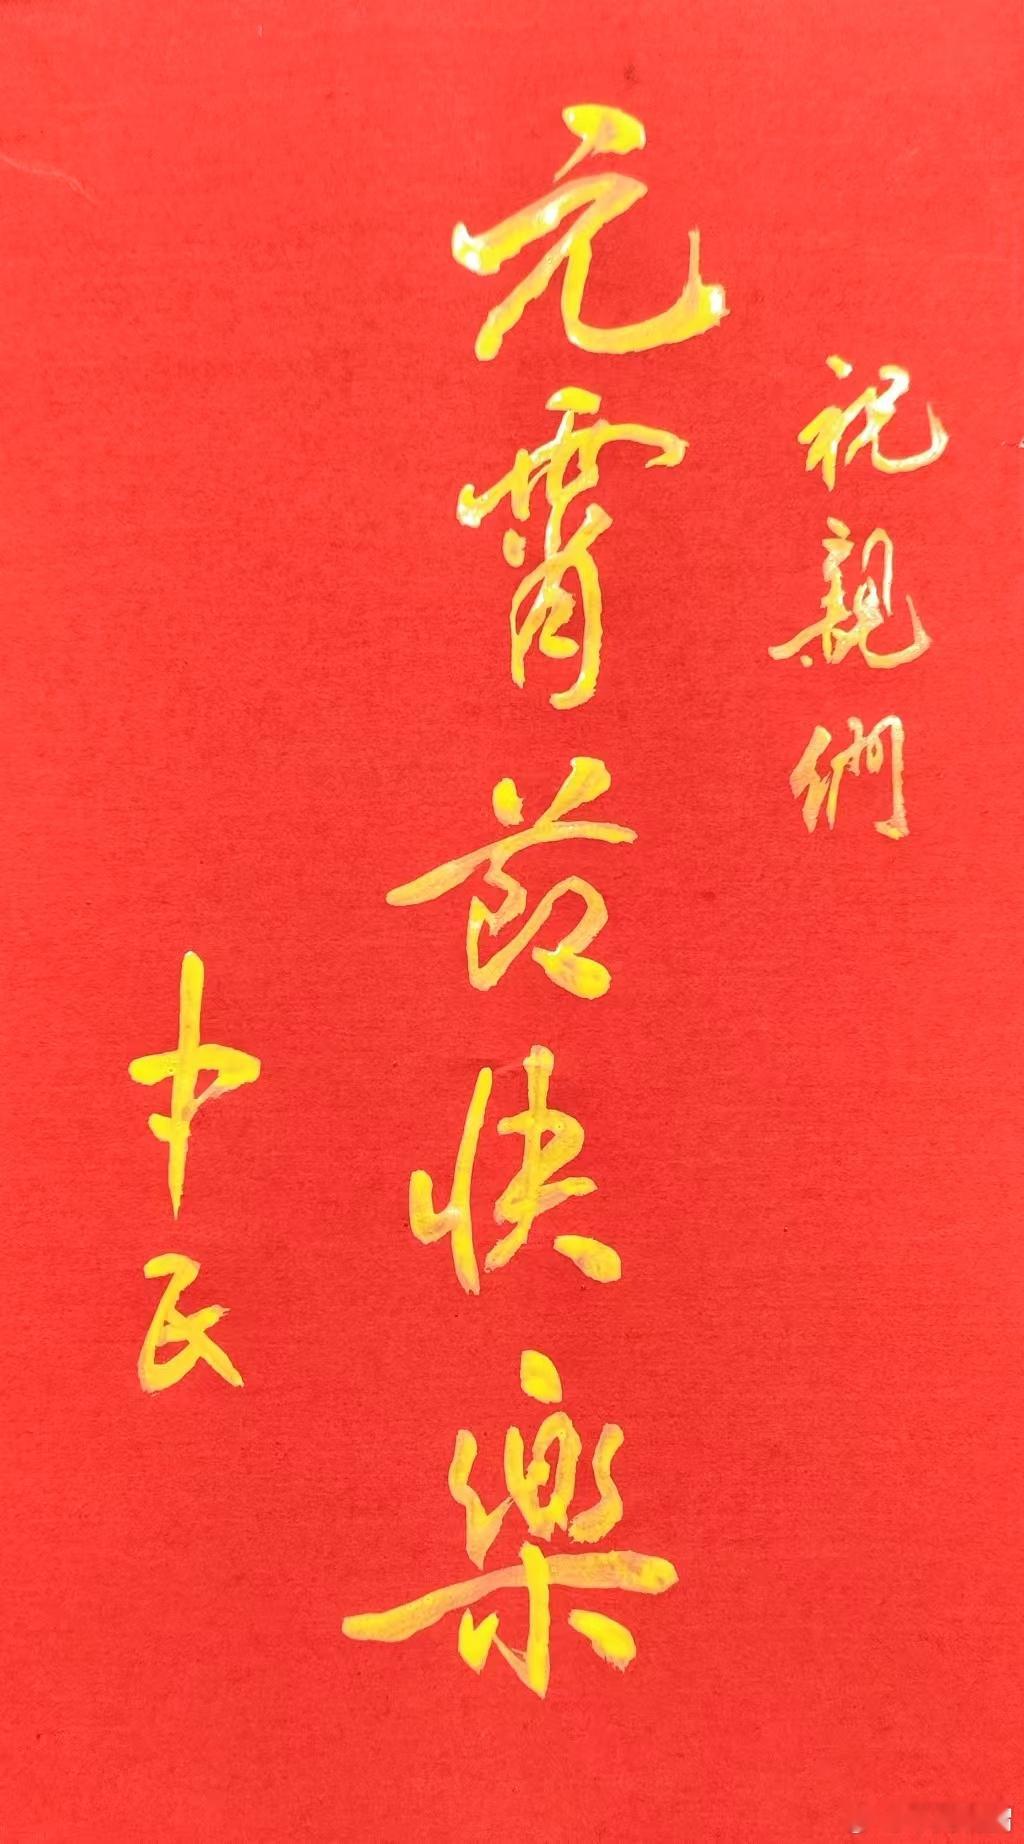 祝親們
元宵節快樂
中民